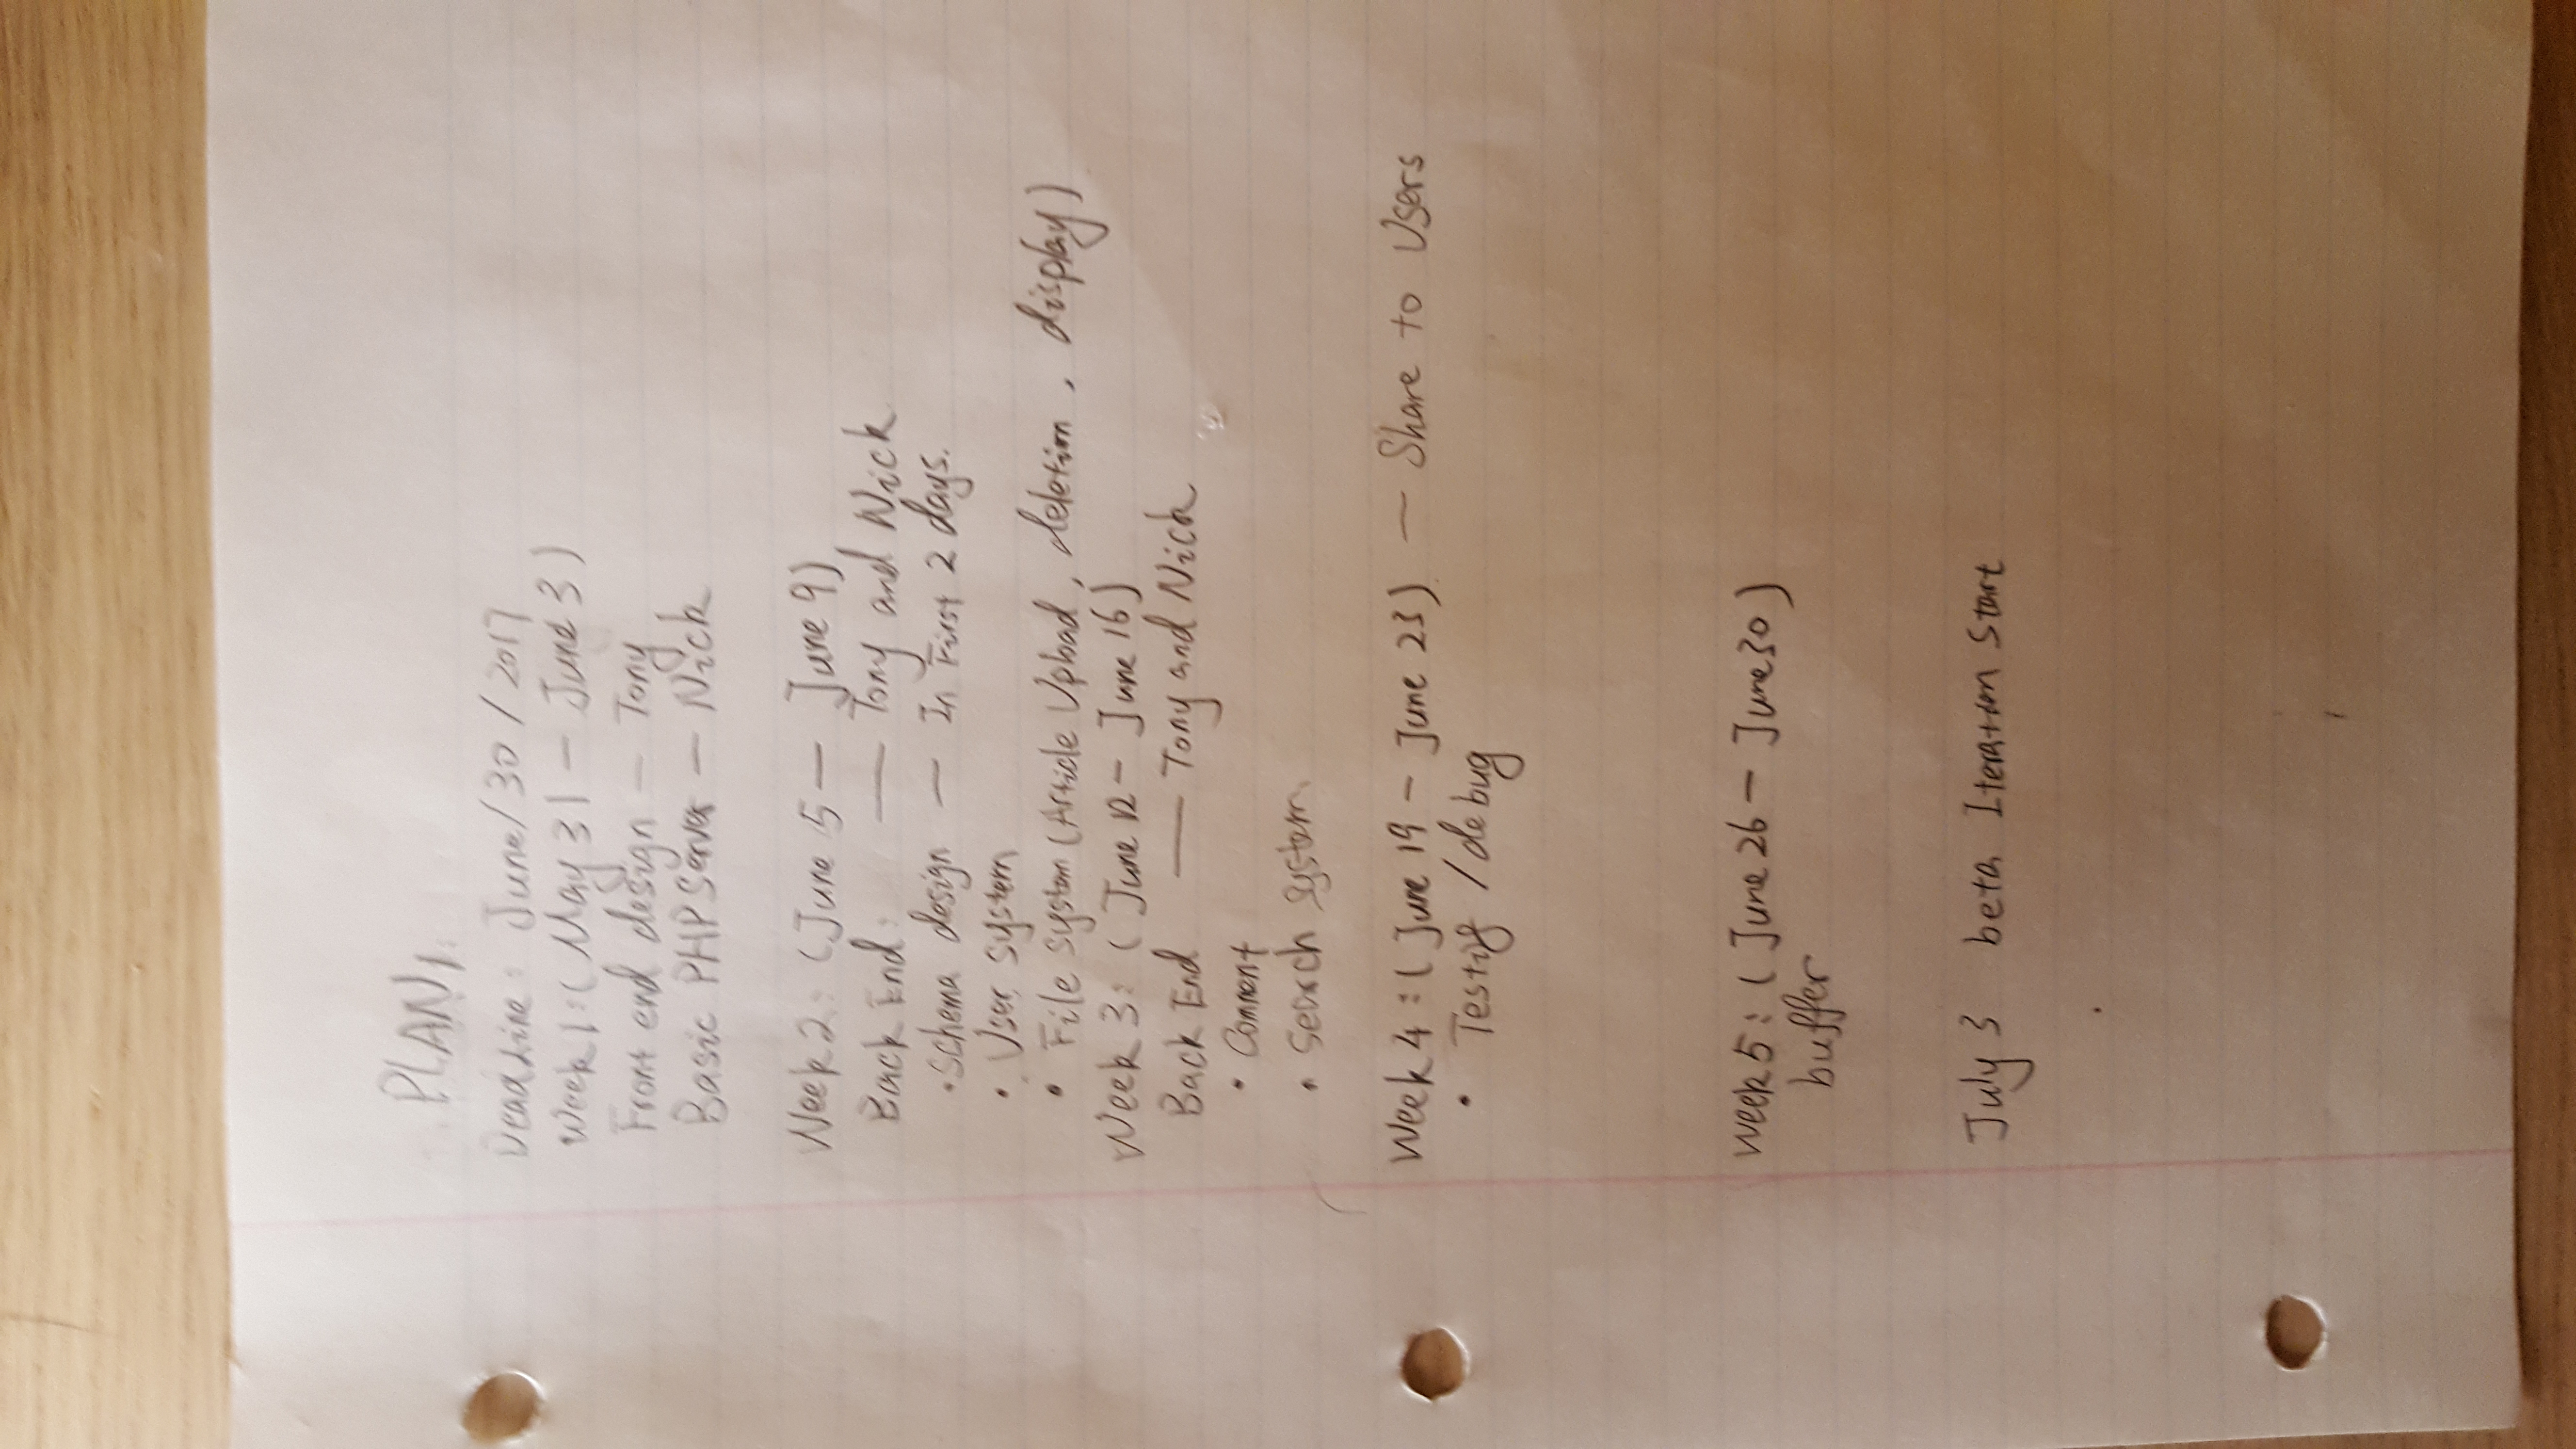 PLAN 1
DeadLine: June/30/2017
Week 1:(May 31 — June 3)
Front end design — Tony
Basic PHP Server — Nick
Week 2: (June 5 — June 9)
Back End: — Tony and Nick
• Schema design — In First 2 days.
• User system
• File system (Article Upload, deletion, display)
Week 3: (June 12 — June 16)
Back End — Tony and Nick
• Comment
• Search system
Week 4:(June 19 — June 23) — Share to Users
• Testig /debug
Week 5: (June 26 — June 30)
buffer
July 3 beta Iteration Start